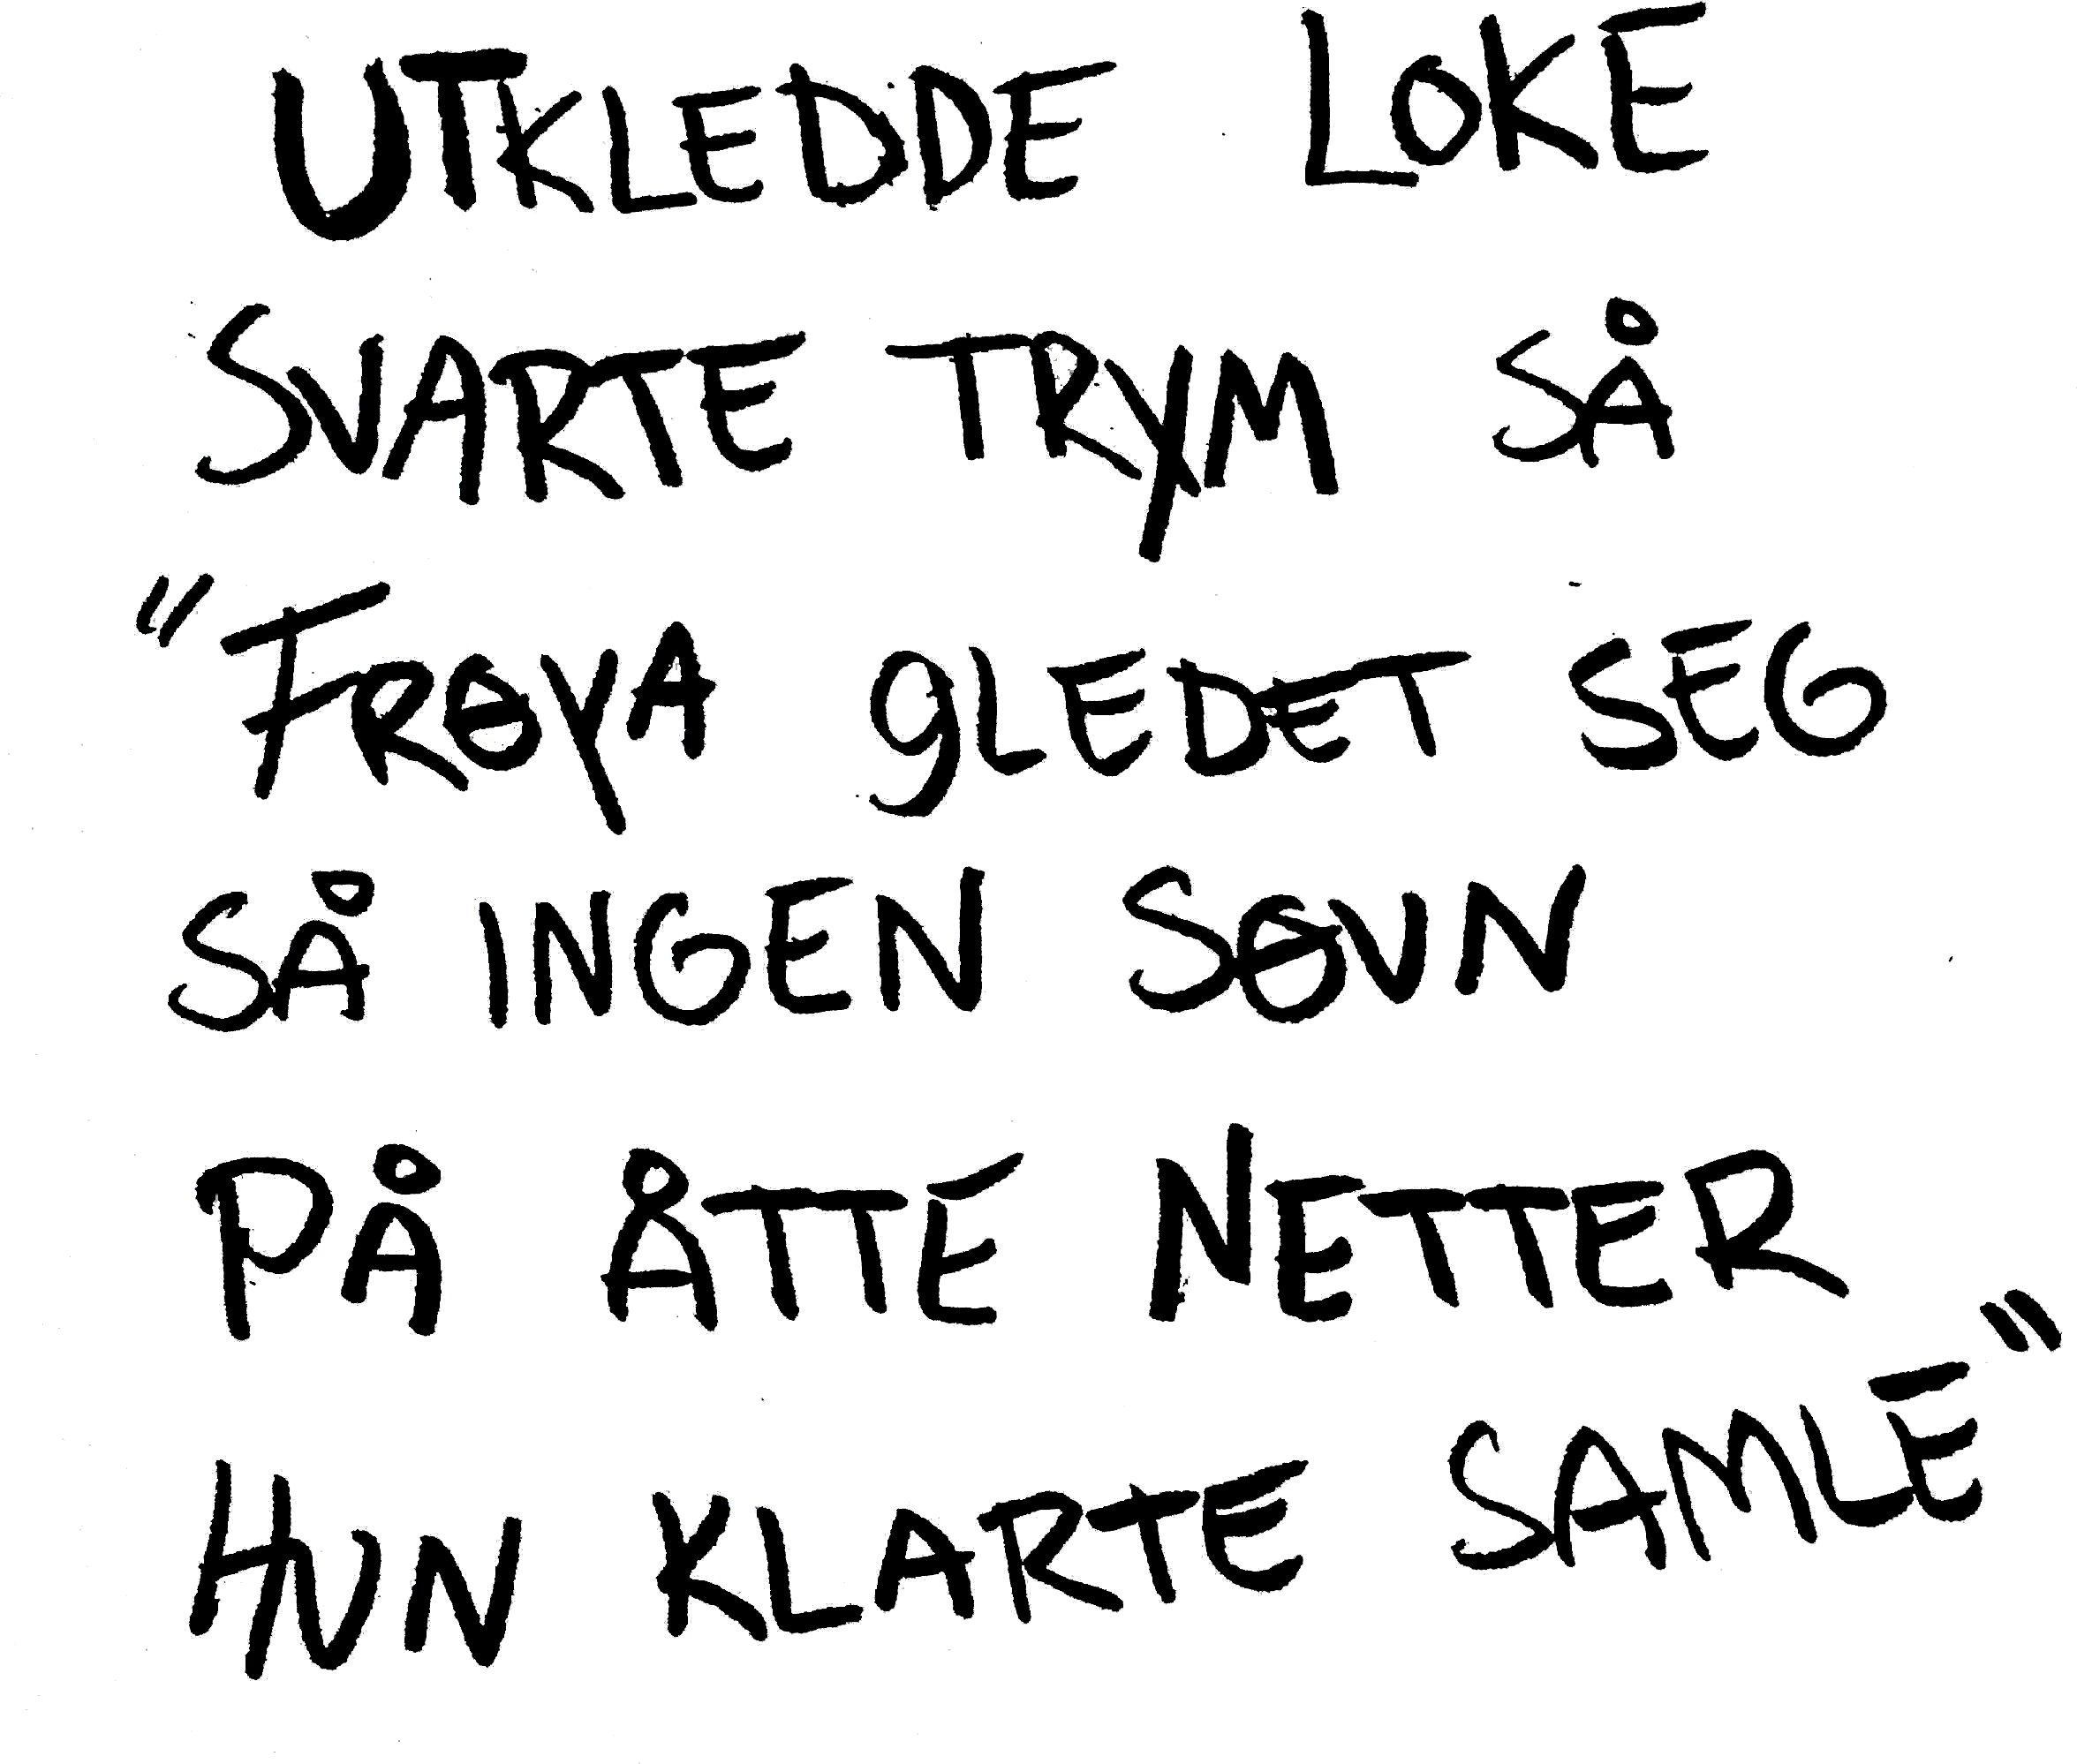 UTKLEDDE LOKE
SVARTE TRYM SÅ
"FRØYA GLEDET SEG
SÅ INGEN SØVN
PÅ ÅTTE NETTER
HUN KLARTE SAMLE"